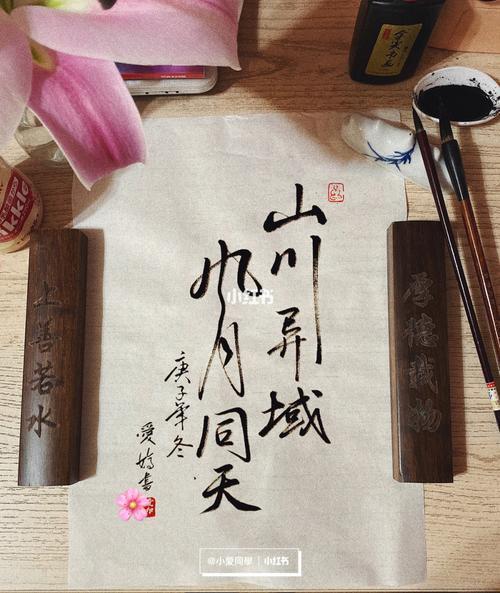 山川异域
风月同天
庚子年冬
愛書
上善若水
厚德載物
小红书
@小愛同學 | 小红书